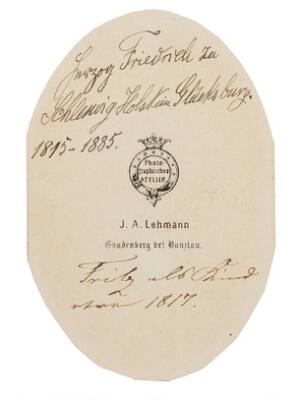 Herzog Friedrich zu
Schleswig Holstein Glücksburg.
1815-1885.
Photo-
graphisches
ATELIER.
J. A. Lehmann
Gnadenberg bei Bunzlau.
Fritz als Kind
etwa 1817.